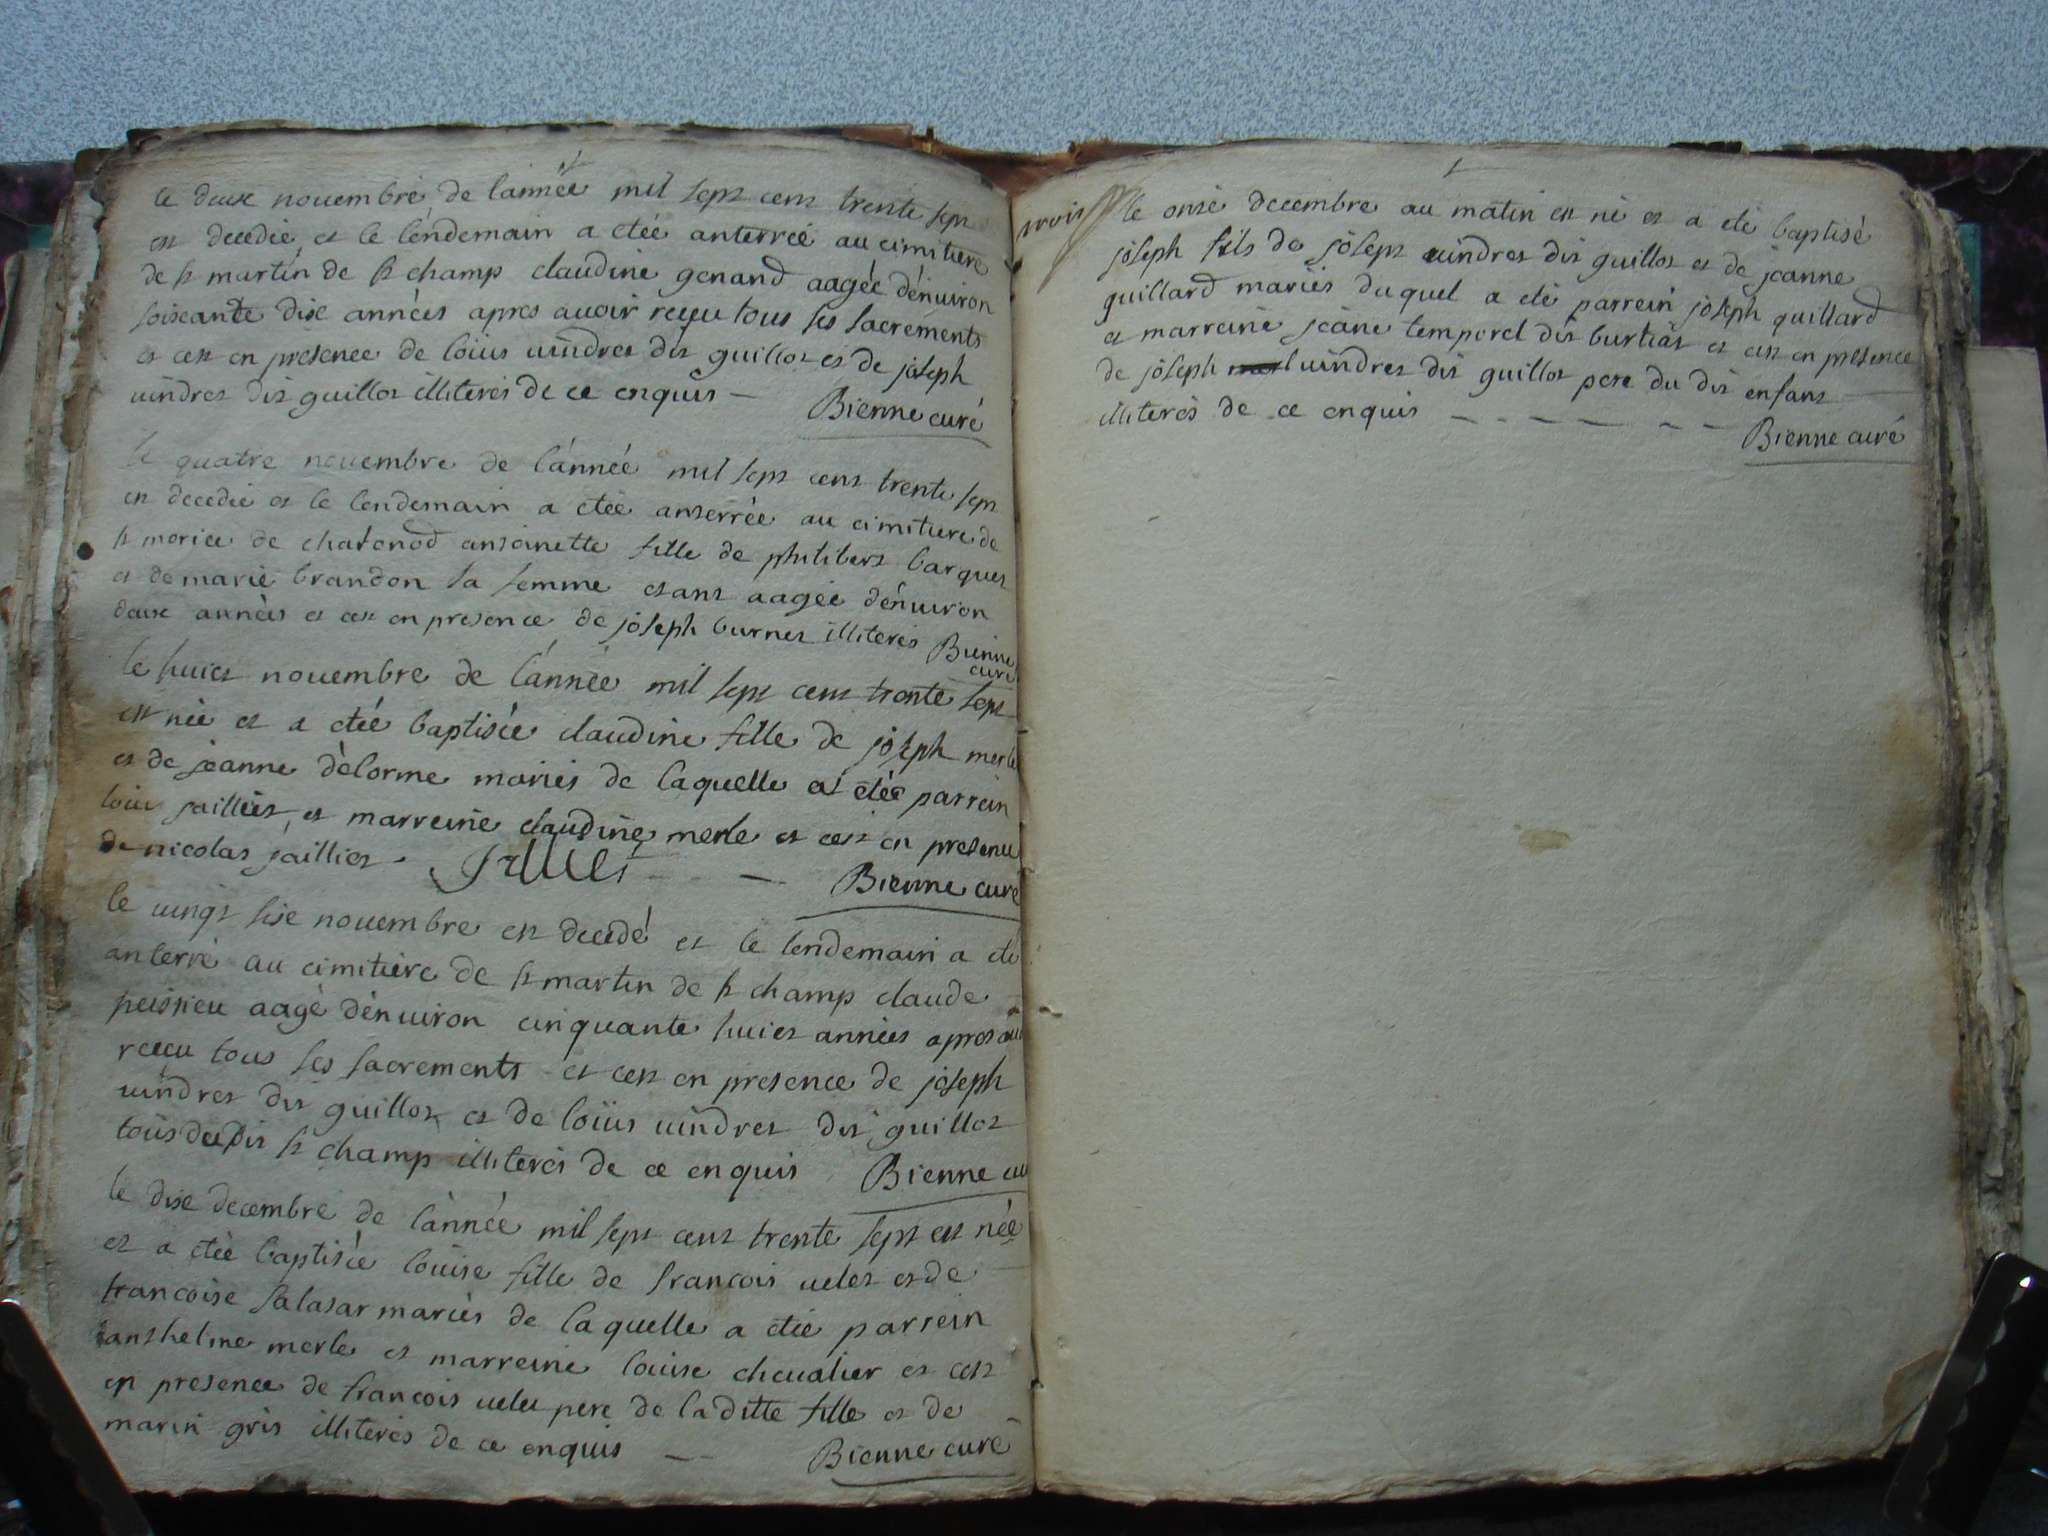 le deux novembre de l'année mil sept cent trente sept
est decedée et le lendemain a etée anterrée au cimitiere
de st martin de st champ claudine genand aagée dénuiron
soixante dix années apres auoir reçeu tous ses sacrements
et cest en presence de loüis uindret dit guillot et de joseph
uindret dit guillot illiterés de ce enquis —
Bienne curé
le quatre nouembre de l'année mil sept cent trente sept
est decedée et le lendemain a etée anterrée au cimitiere de
st morice de chatonod antoinette fille de philibert barquet
et de marie brandon sa femme etant aagée dénuiron
deux années et cest en presence de joseph burnet illiterés
Bienne
curé
le huict nouembre de l'année mil sept cent trente sept
est née et a etée baptisée claudine fille de joseph merle
et de jeanne délorme mariés de laquelle a etée parrein
loüis jaillet et marreine claudine merle et cest en presence
de nicolas jaillet
Bienne curé
le uingt sixe nouembre est decedé et le lendemain a eté
anterré au cimitiere de st martin de st champ claude
peissieu aagé dénuiron cinquante huict années apres
receu tous ses sacrements et cest en presence de joseph
uindret dit guillot et de loüis uindret dit guillot
tous dudit st champ illiterés de ce enquis
Bienne cu
le dixe decembre de l'année mil sept cent trente sept est née
et a etée baptisée louise fille de francois uelet et de
francoise salasar mariés de laquelle a etée parrein
anthelme merle et marreine louise cheualier et cest
en presence de francois uelet pere de laditte fille et de
marin gris illiterés de ce enquis —
Bienne curé
le onze decembre au matin est né et a eté baptisé
joseph fils de joseph uindret dit guillot et de jeanne
guillard mariés duquel a eté parrein joseph guillard
et marreine jeane temporel dit burtiat et cest en presence
de joseph uindret dit guillot pere du dit enfant
illiterés de ce enquis — — — — —
Bienne curé